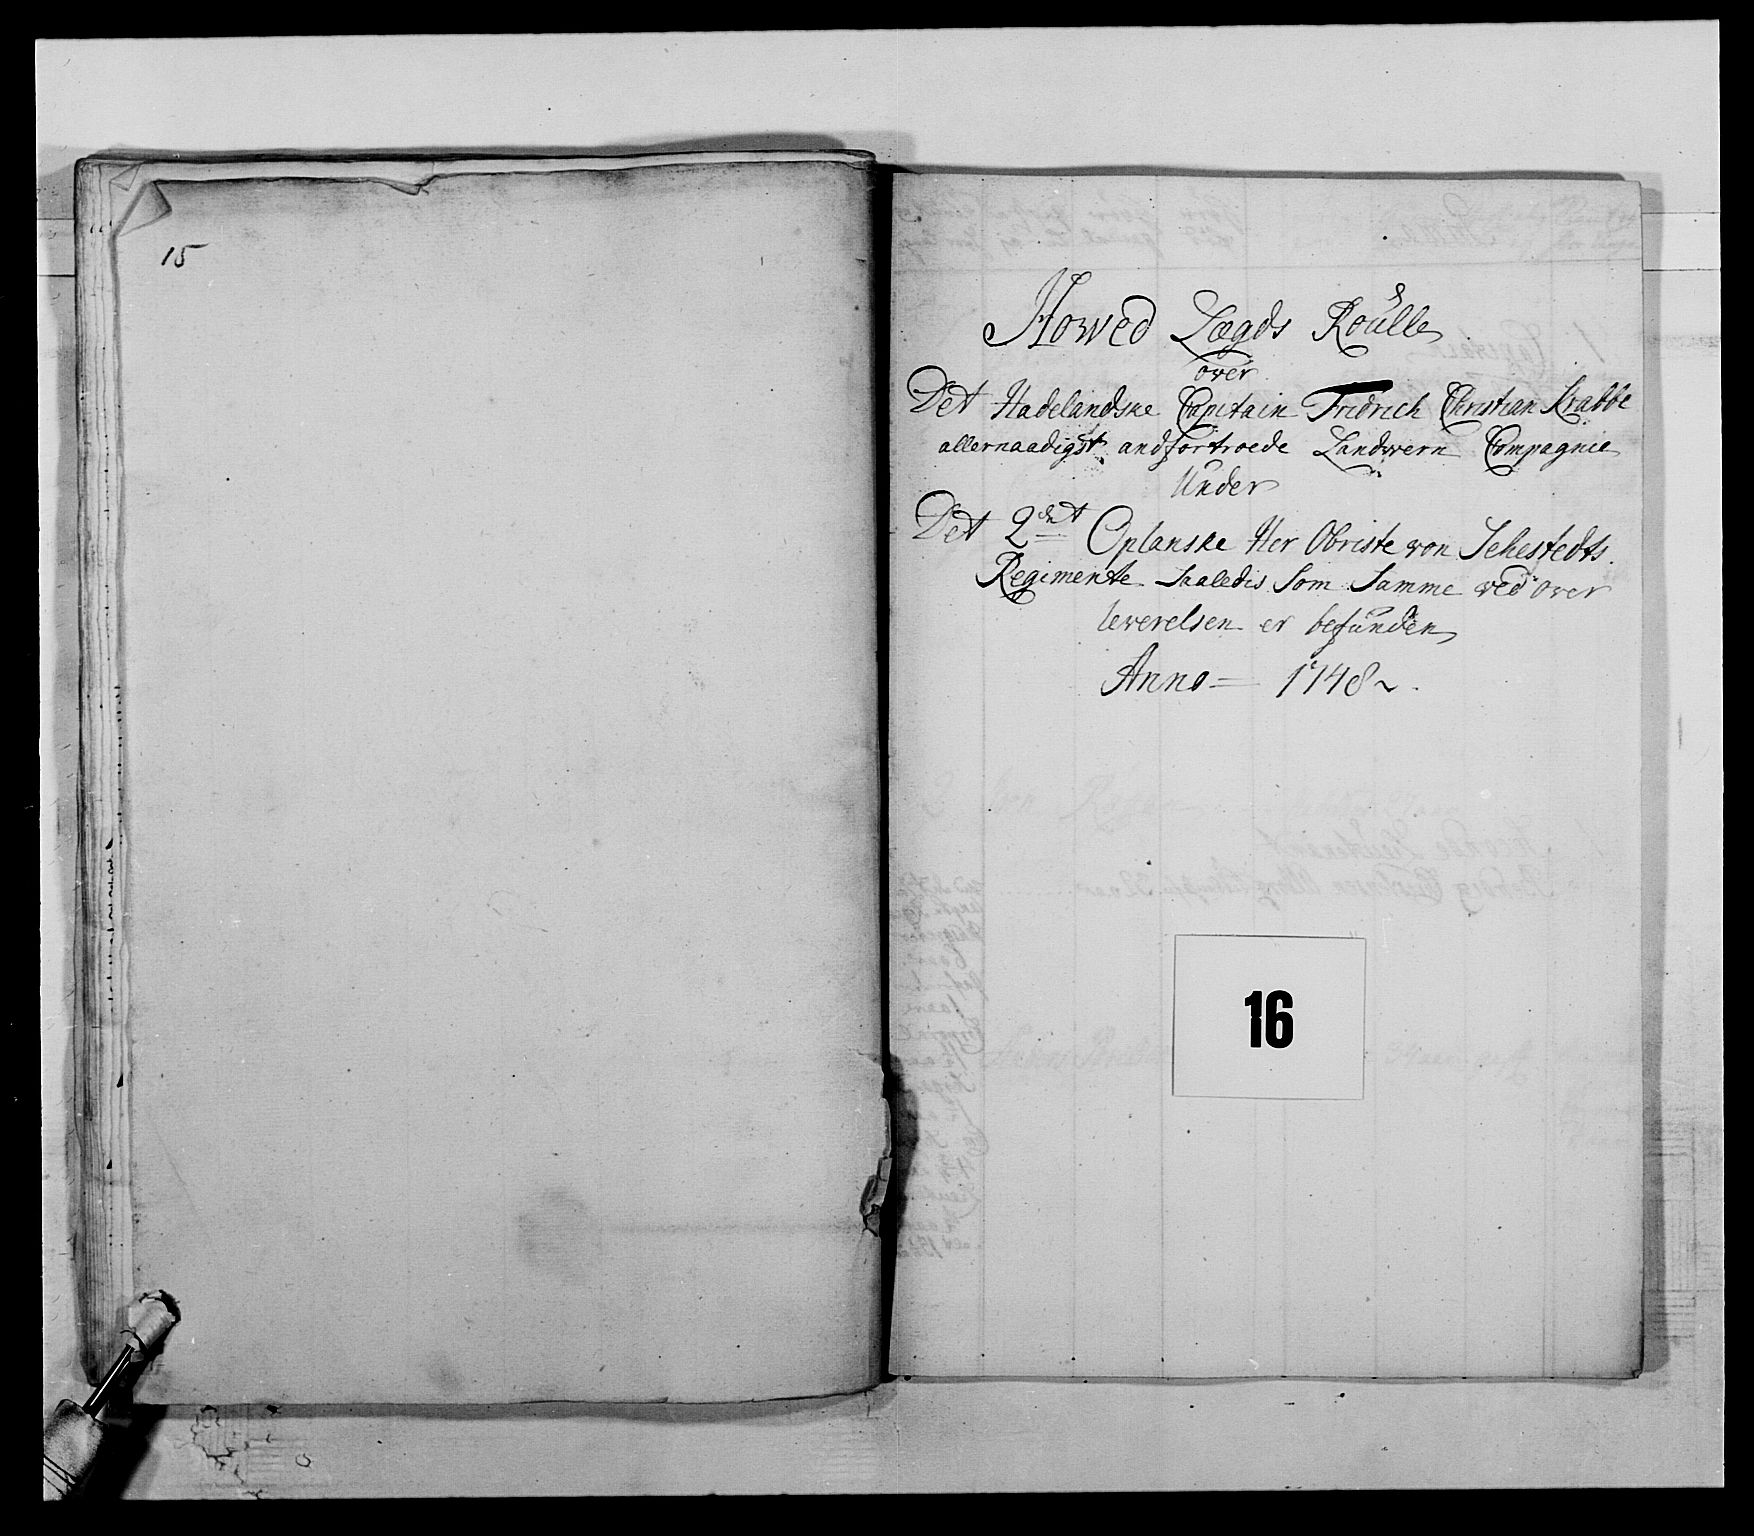 15
Howed Lægds Roulle
over
Det Hadelandske Capitain Fridrich Christian Krabbe
allernaadigst andfortroede Landwern Compagnie
Under
Det 2det Oplanske Her Obriste von Sehestedts
Regimente Saaledis Som Samme ved over
leverelsen er befunden
Anno = 1748
16